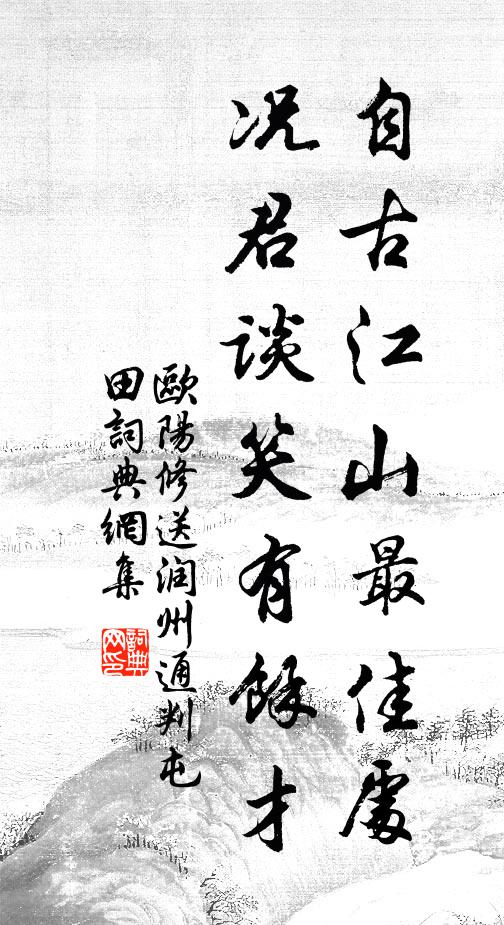 自古江山最佳處
况君談笑有餘才
歐陽修送润州通判屯
田詞典網集
詞典
网印